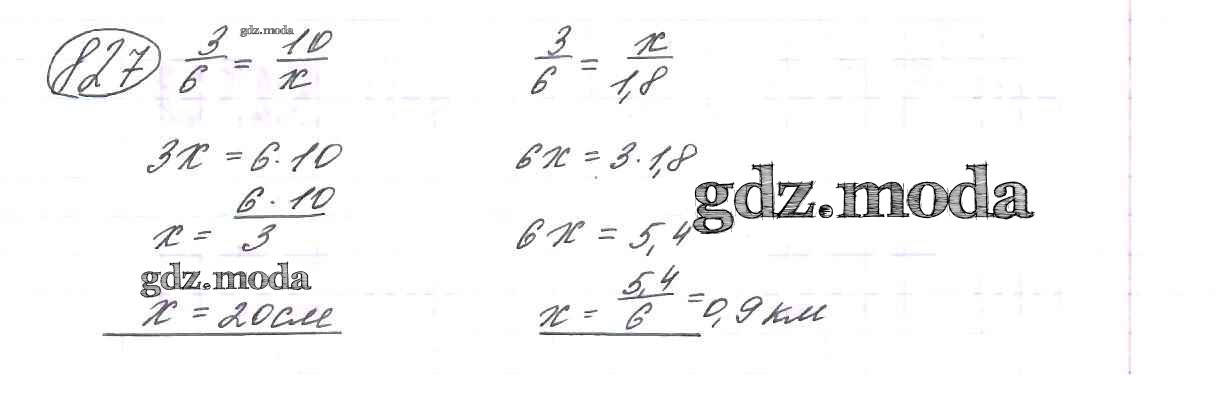 827
gdz.moda
3/6 = 10/x
3x = 6·10
x = 6·10/3
gdz.moda
x = 20см
3/6 = x/1,8
6x = 3·1,8
gdz.moda
6x = 5,4
x = 5,4/6 = 0,9 км